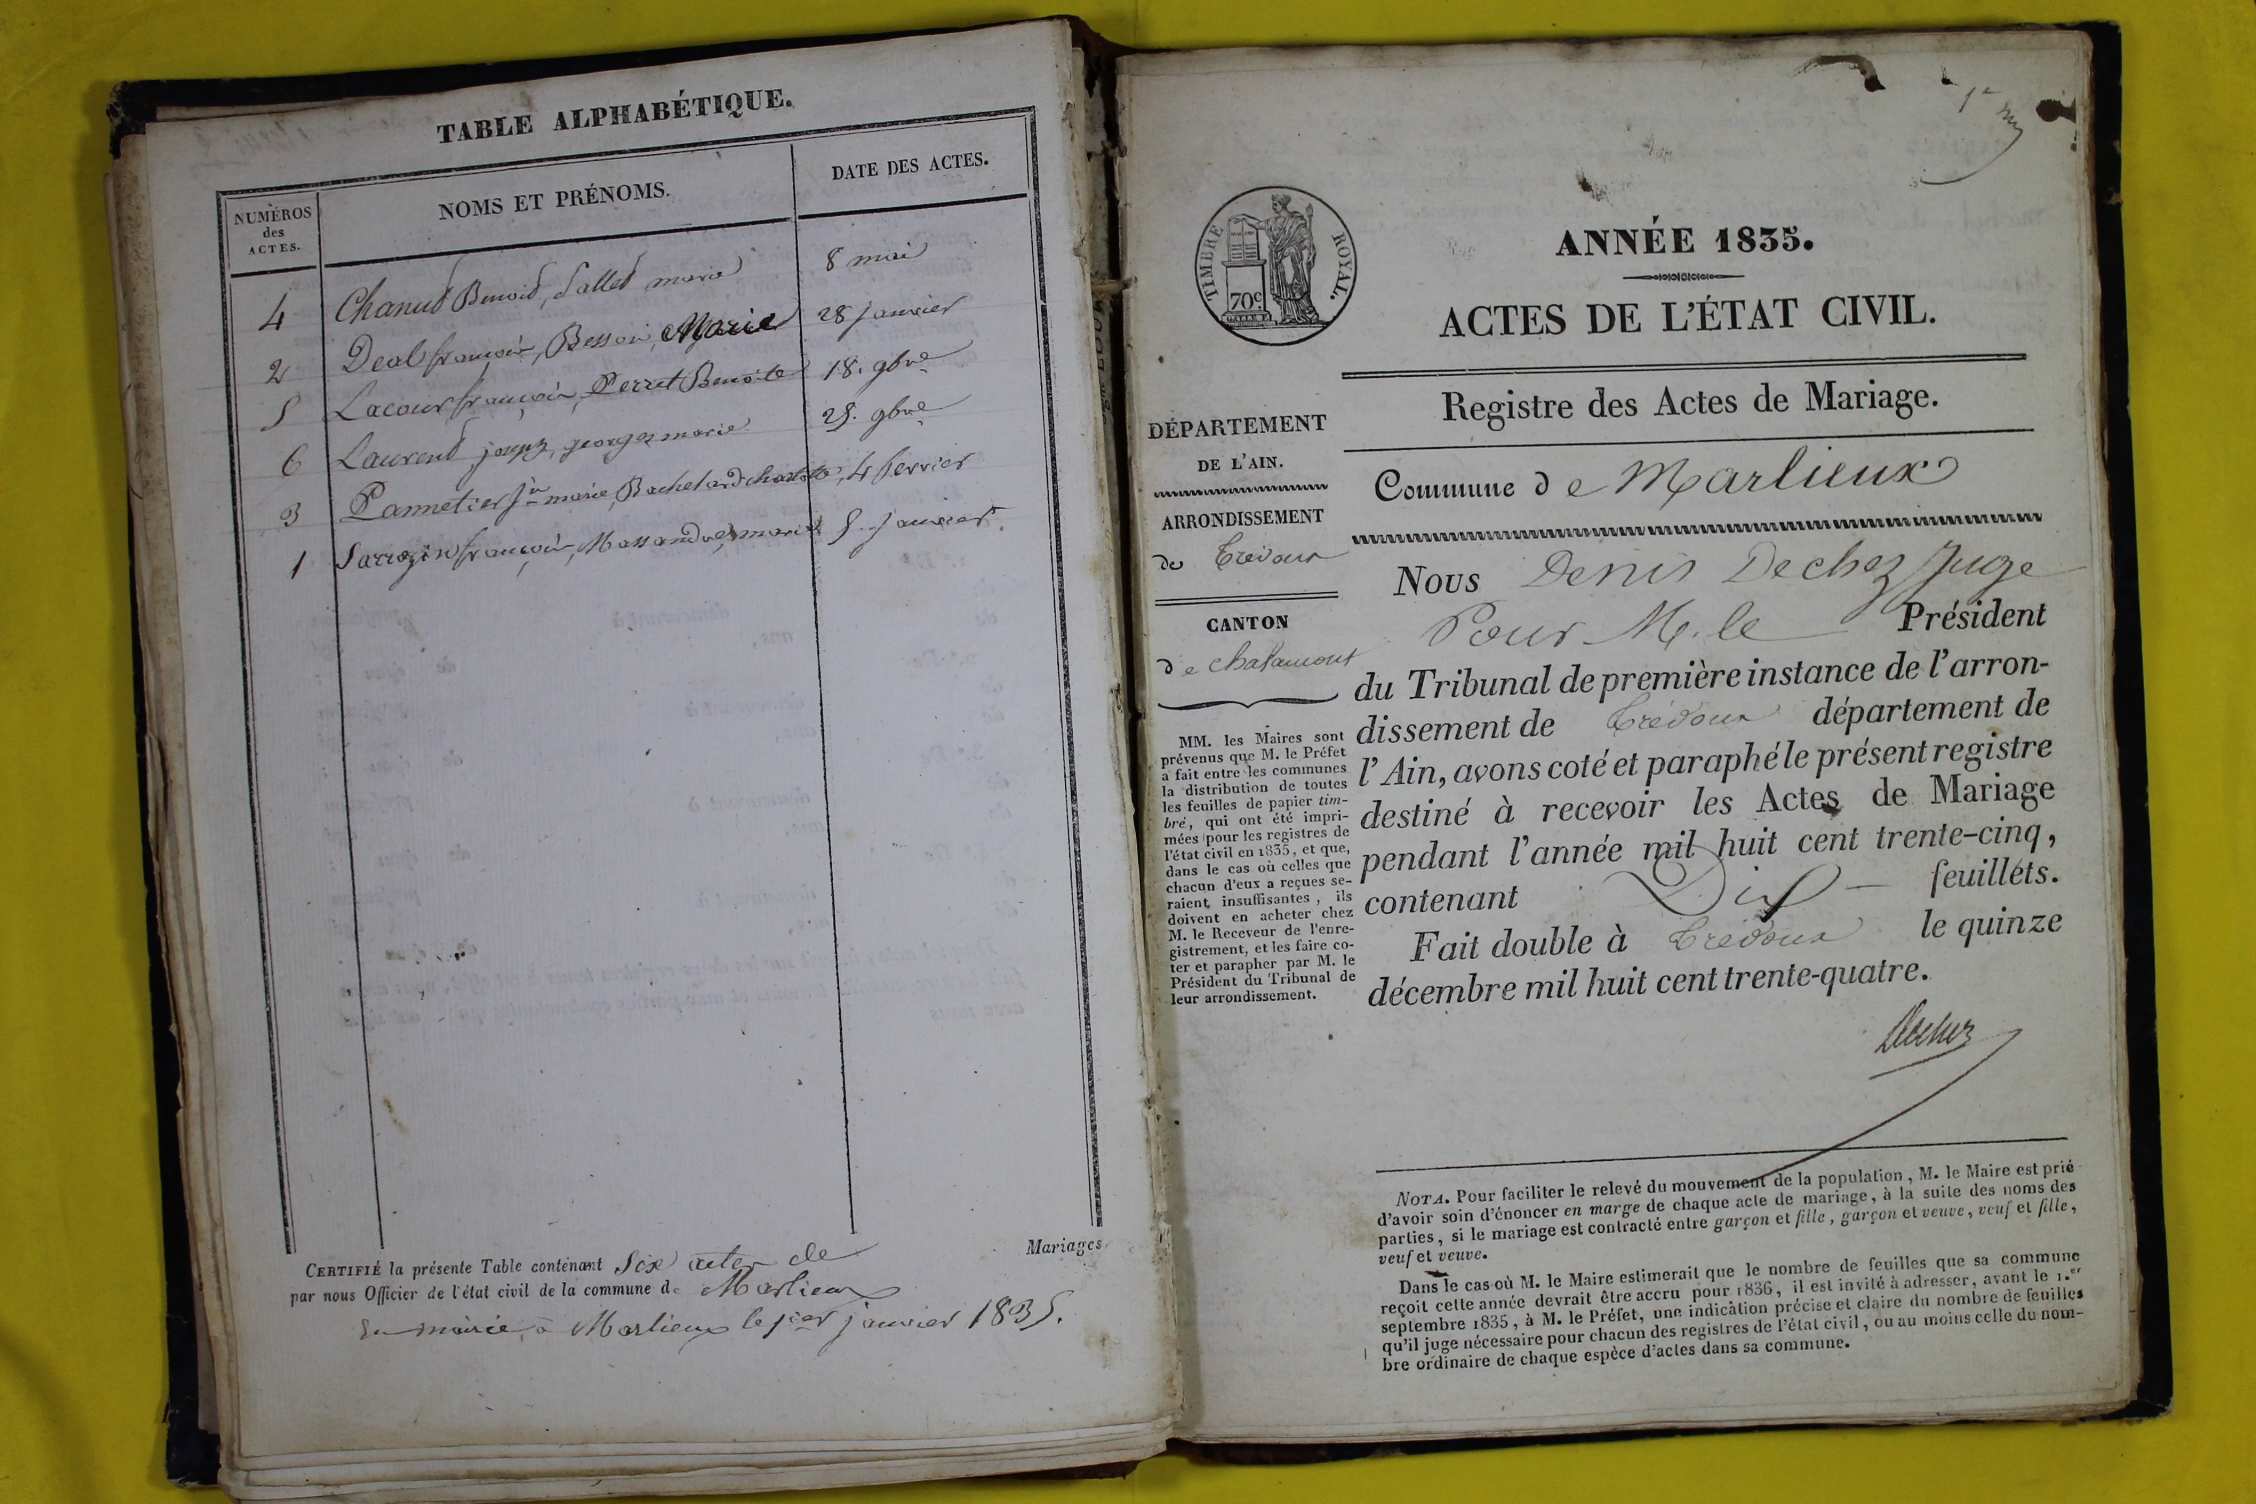 TABLE ALPHABÉTIQUE.
NUMÉROS
des
ACTES.
NOMS ET PRÉNOMS.
DATE DES ACTES.
4 Chanud Benoid, Sallet marie 8 mai
2 Deal françois, Besson, Marie 28 janvier
5 Lacour françois, Perret Benoite 18. 9bre
6 Laurend joseph, georges marie 25. 9bre
3 Pannetier jn marie, Bachelard charlotte, 4 fevrier
1 Sarrozin françois, marie 5. janvier.
CERTIFIÉ la présente Table contenant Six actes de Mariages
par nous Officier de l'état civil de la commune de Marlieux
En mairie, à Marlieux le 1er janvier 1835.
TIMBRE ROYAL.
70c.
ANNÉE 1835.
ACTES DE L'ÉTAT CIVIL.
Registre des Actes de Mariage.
Commune de Marlieux
DÉPARTEMENT
DE L'AIN.
ARRONDISSEMENT
de Trévoux
CANTON
de Chalamont
MM. les Maires sont
prévenus que M. le Préfet
a fait entre les communes
la distribution de toutes
les feuilles de papier tim-
bré, qui ont été impri-
mées pour les registres de
l'état civil en 1835, et que,
dans le cas où celles que
chacun d'eux a reçues se-
raient insuffisantes, ils
doivent en acheter chez
M. le Receveur de l'enre-
gistrement, et les faire co-
ter et parapher par M. le
Président du Tribunal de
leur arrondissement.
Nous Denis Dechez Juge
Pour M. le Président
du Tribunal de première instance de l'arron-
dissement de Trévoux département de
l'Ain, avons coté et paraphé le présent registre
destiné à recevoir les Actes de Mariage
pendant l'année mil huit cent trente-cinq,
contenant Dix feuillets.
Fait double à Trévoux le quinze
décembre mil huit cent trente-quatre.
Dechez
NOTA. Pour faciliter le relevé du mouvement de la population, M. le Maire est prié
d'avoir soin d'énoncer en marge de chaque acte de mariage, à la suite des noms des
parties, si le mariage est contracté entre garçon et fille, garçon et veuve, veuf et fille,
veuf et veuve.
Dans le cas où M. le Maire estimerait que le nombre de feuilles que sa commune
reçoit cette année devrait être accru pour 1836, il est invité à adresser, avant le 1.er
septembre 1835, à M. le Préfet, une indication précise et claire du nombre de feuilles
qu'il juge nécessaire pour chacun des registres de l'état civil, ou au moins celle du nom-
bre ordinaire de chaque espèce d'actes dans sa commune.